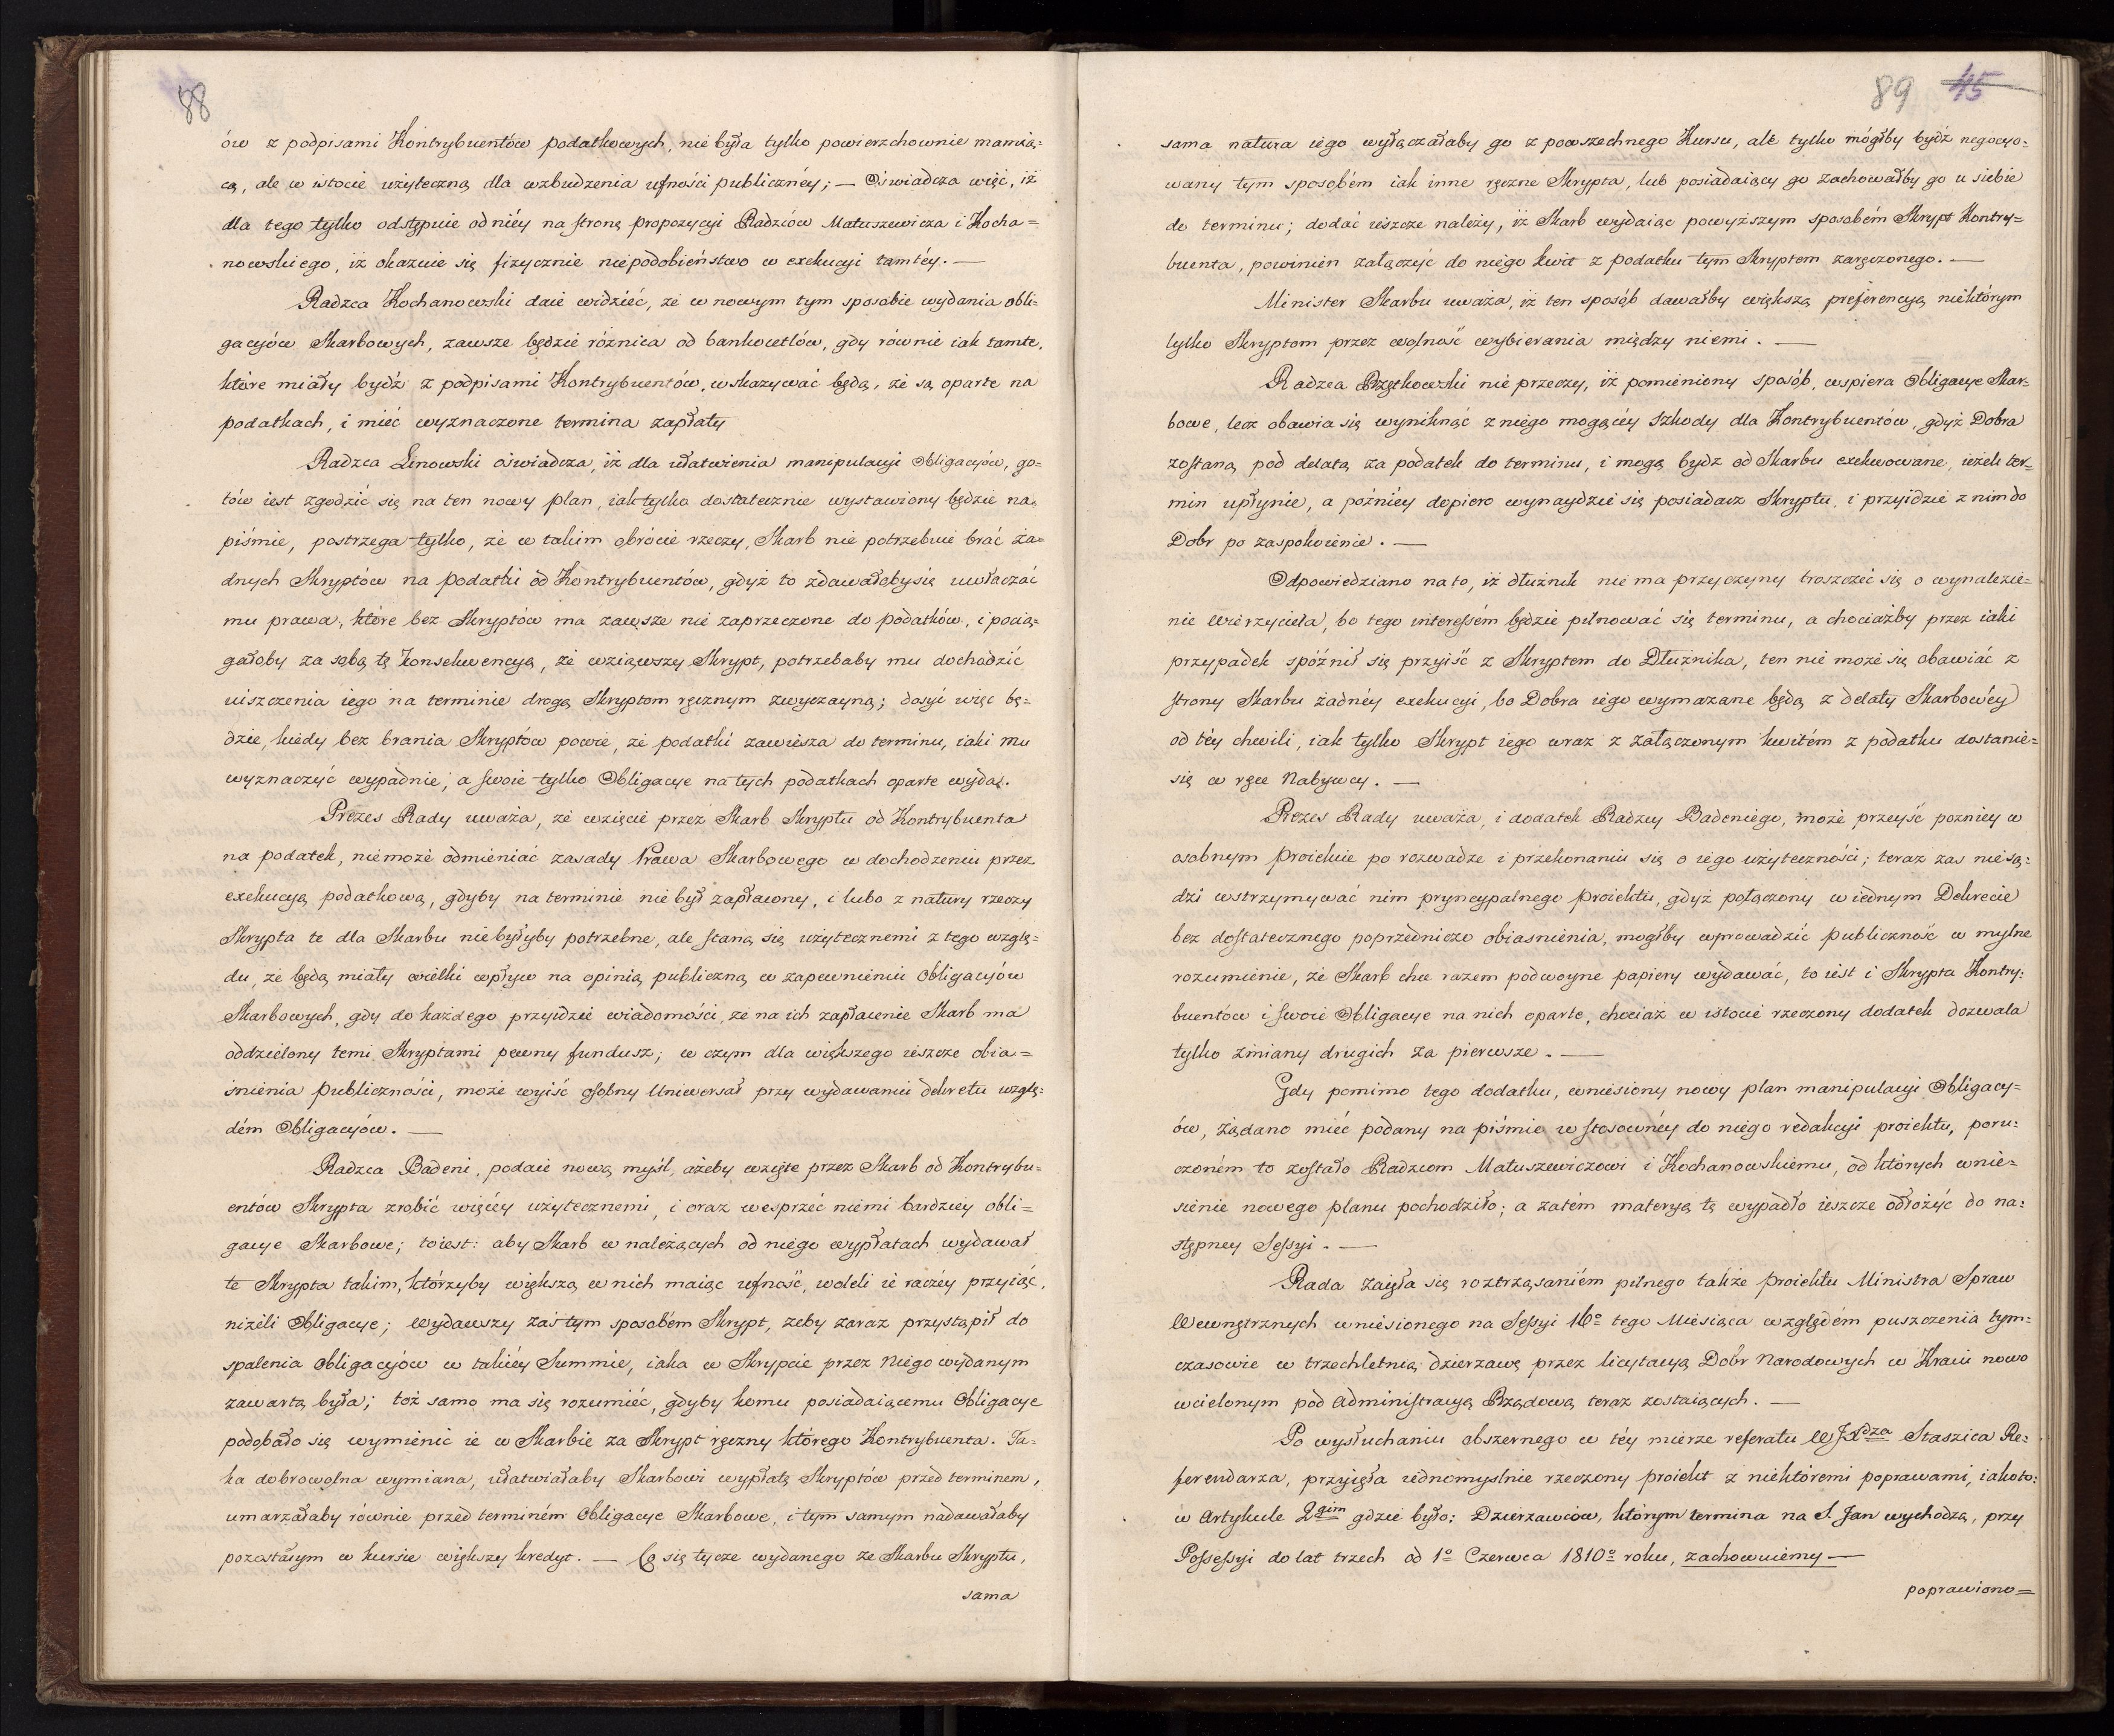 88
ów z podpisami Kontrybuentów podatkowych, nie była tylko powierzchownie mamią=
cą, ale w istocie użyteczną dla wzbudzenia ufności publicznéy; — Oświadcza więc, iż
dla tego tylko odstępuie od niéy na stronę propozycyi Radzców Matuszewicza i Kocha=
nowskiego, iż okazuie się fizycznie niepodobieństwo w exekucyi tamtéy. —
Radzca Kochanowski daie widzieć, że w nowym tym sposobie wydania obli=
gacyów Skarbowych, zawsze będzie różnica od bankocetlów, gdy równie iak tamte,
które miały bydź z podpisami Kontrybuentów, wskazywać będą, że są oparte na
podatkach, i mieć wyznaczone termina zapłaty
Radzca Linowski oświadcza, iż dla ułatwienia manipulacyi Obligacyów, go=
tów iest zgodzić się na ten nowy plan, iak tylko dostatecznie wystawiony będzie na
piśmie, postrzega tylko, że w takim obrócie rzeczy, Skarb nie potrzebuie brać ża=
dnych Skryptów na podatki od Kontrybuentów, gdyż to zdawałoby się uwłaczać
mu prawa, które bez Skryptów ma zawsze nie zaprzeczone do podatków, i pocią=
gałoby za sobą tę konsekwencyą, że wziąwszy Skrypt, potrzebaby mu dochodzić
uiszczenia iego na terminie drogą Skryptom ręcznym zwyczayną; dosyć więc bę=
dzie, kiedy bez brania Skryptów powie, że podatki zawiesza do terminu, iaki mu
wyznaczyć wypadnie, a swoie tylko Obligacye na tych podatkach oparte wyda.
Prezes Rady uważa, że wzięcie przez Skarb Skryptu od Kontrybuenta
na podatek, niemoże odmieniać zasady Prawa Skarbowego w dochodzeniu przez
exekucyą podatkową, gdyby na terminie nie był zapłacony, i lubo z natury rzeczy
Skrypta te dla Skarbu niebyłyby potrzebne, ale staną się użytecznemi z tego wzglę=
du, że będą miały wielki wpływ na opinią publiczną w zapewnieniu Obligacyów
Skarbowych, gdy do każdego przyidzie wiadomości, że na ich zapłacenie Skarb ma
oddzielony temi Skryptami pewny fundusz; w czym dla większego ieszcze obia=
śnienia publiczności, może wyiść osobny Uniwersał przy wydawaniu dekretu wzglę=
dém Obligacyów. —
Radzca Badeni, podaie nową myśl, ażeby wzięte przez Skarb od Kontrybu=
entów Skrypta zrobić więcéy użytecznemi, i oraz wesprzeć niemi bardziey obli=
gacye Skarbowe; toiest: aby Skarb w należących od niego wypłatach wydawał
te Skrypta takim, którzyby większą w nich maiąc ufność, woleli ie raczéy przyiąć,
niżeli Obligacye; wydawszy zaś tym sposobém Skrypt, żeby zaraz przystąpił do
spalenia Obligacyów w takiéy Summie, iaka w Skrypcie przez niego wydanym
zawartą była; toż samo ma się rozumieć, gdyby komu posiadaiącemu Obligacye
podobało się wymienić ie w Skarbie za Skrypt ręczny którego Kontrybuenta. Ta=
ka dobrowolna wymiana, ułatwiałaby Skarbowi wypłatę Skryptów przed terminem,
umarzałaby równie przed terminém Obligacye Skarbowe, i tym samym nadawałaby
pozostałym w kursie większy kredyt. — Co się tycze wydanego ze Skarbu Skryptu,
sama
89 45
sama natura iego wyłączałaby go z powszechnego Kursu, ale tylko mógłby bydź negocyo=
wany tym sposobém iak inne ręczne Skrypta, lub posiadaiący go zachowałby go u siebie
do terminu; dodać ieszcze należy, iż Skarb wydaiąc powyższym sposobém Skrypt Kontry=
buenta, powinien załączyć do niego kwit z podatku tym Skryptem zaręczonego. —
Minister Skarbu uważa, iż ten sposób dawałby większą preferencyą niektórym
tylko Skryptom przez wolność wybierania między niemi. —
Radzca Rzętkowski nie przeczy, iż pomieniony sposób, wspiera Obligacye Skar=
bowe, lecz obawia się wyniknąć z niego mogącéy szkody dla Kontrybuentów, gdyż Dobra
zostaną pod delatą za podatek do terminu, i mogą bydz od Skarbu exekwowane, ieżeli ter=
min upłynie, a późniéy dopiero wynaydzie się posiadacz Skryptu, i przyidzie z nim do
Dobr po zaspokoienie. —
Odpowiedziano na to, iż dłużnik nie ma przyczyny troszczéć się o wynalezie=
nie Wierzyciela, bo tego interessém będzie pilnować się terminu, a chociażby przez iaki
przypadek spóźnił się przyiść z Skryptem do Dłużnika, ten nie może się obawiać z
strony Skarbu żadnéy exekucyi, bo Dobra iego wymazane będą z delaty Skarbowéy
od téy chwili, iak tylko Skrypt iego wraz z załączonym kwitém z podatku dostanie=
się w ręce Nabywcy. —
Prezes Rady uważa, i dodatek Radzcy Badeniego, może przeyść pozniéy w
osobnym Proiekcie po rozwadze i przekonaniu się o iego użyteczności; teraz zas niesą=
dzi wstrzymywać nim pryncypalnego Proiektu, gdyż połączony w iednym Dekrecie
bez dostatecznego poprzedniczo obiasnienia, mogłby wprowadzić publiczność w mylne
rozumienie, że Skarb chce razem podwoyne papiery wydawać, to iest i Skrypta Kontry=
buentów i swoie Obligacye na nich oparte, chociaż w istocie rzeczony dodatek dozwala
tylko zmiany drugich za pierwsze. —
Gdy pomimo tego dodatku, wniesiony nowy plan manipulacyi Obligacy=
ów, żądano mieć podany na piśmie w stosownéy do niego redakcyi proiektu, poru=
czoném to zostało Radzcom Matuszewiczowi i Kochanowskiemu, od których wnie=
sienie nowego planu pochodziło; a zatém materyą tę wypadło ieszcze odłożyć do na=
stępney Sessyi. —
Rada zaięła się roztrząsaniém pilnego także Proiektu Ministra Spraw
Wewnętrznych wniesionego na Sessyi 16º tego Miesiąca względém puszczenia tym=
czasowie w trzechletnią dzierzawę przez licytacyą Dobr Narodowych w Kraiu nowo
wcielonym pod Administracyą Rządową teraz zostaiących. —
Po wysłuchaniu obszernego w téy mierze referatu WJXdza Staszica Re=
ferendarza, przyięła iednomyslnie rzeczony proiekt z niektóremi poprawami, iakoto:
w Artykule 2gim gdzie było: Dzierzawców, którym termina na S. Jan wychodzą, przy
Possessyi do lat trzech od 1º Czerwca 1810º roku, zachowuiemy —
poprawiono=